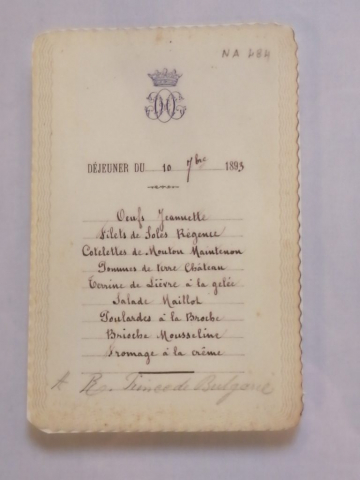 NA 484
DÉJEUNER DU 10 7bre 1893
Oeufs Jeannette
Filets de Soles Régence
Cotelettes de Mouton Maintenon
Pommes de terre Château
Terrine de Lièvre à la gelée
Salade Maillot
Poulardes à la Broche
Brioche Mousseline
Fromage à la crème
Prince de Bulgarie